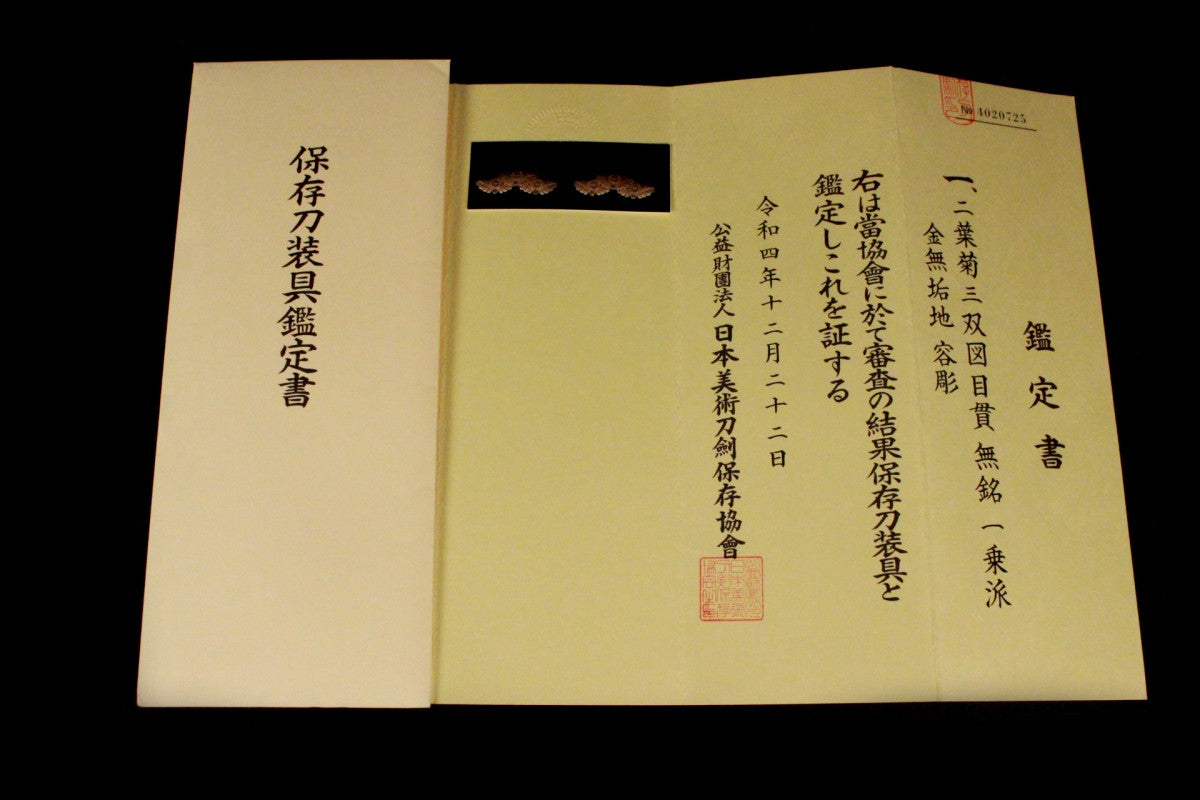 保存刀装具鑑定書
№ 4020725
鑑定書
一、二葉菊三双図目貫 無銘 一乗派
金無垢地 容彫
右は當協會に於て審査の結果保存刀装具と
鑑定しこれを証する
令和四年十二月二十二日
公益財團法人 日本美術刀劍保存協會